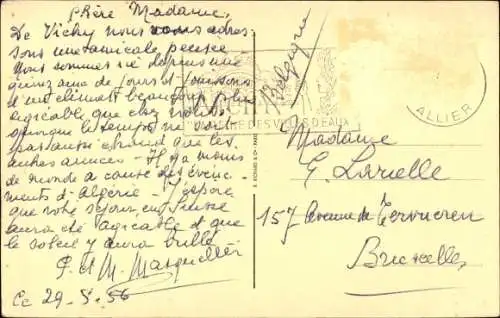 Chère Madame,
De Vichy nous vous adres-
sons une amicale pensée -
Nous sommes ici depuis une
quinzaine de jours et jouissons
d'un climat beaucoup plus
agréable que chez nous
quoique le temps ne soit
pas aussi chaud que les
autres années - Il y a moins
de monde à cause des évène-
ments d'Algérie - J'espère
que votre séjour en Suisse
aura été agréable et que
le soleil y aura brillé
P. et M.
Ce 29-5-56
Belgique
VICHY
REINE DES VILLES D'EAUX
ALLIER
Madame
E. Larielle
157 Avenue de Tervueren
Bruxelles